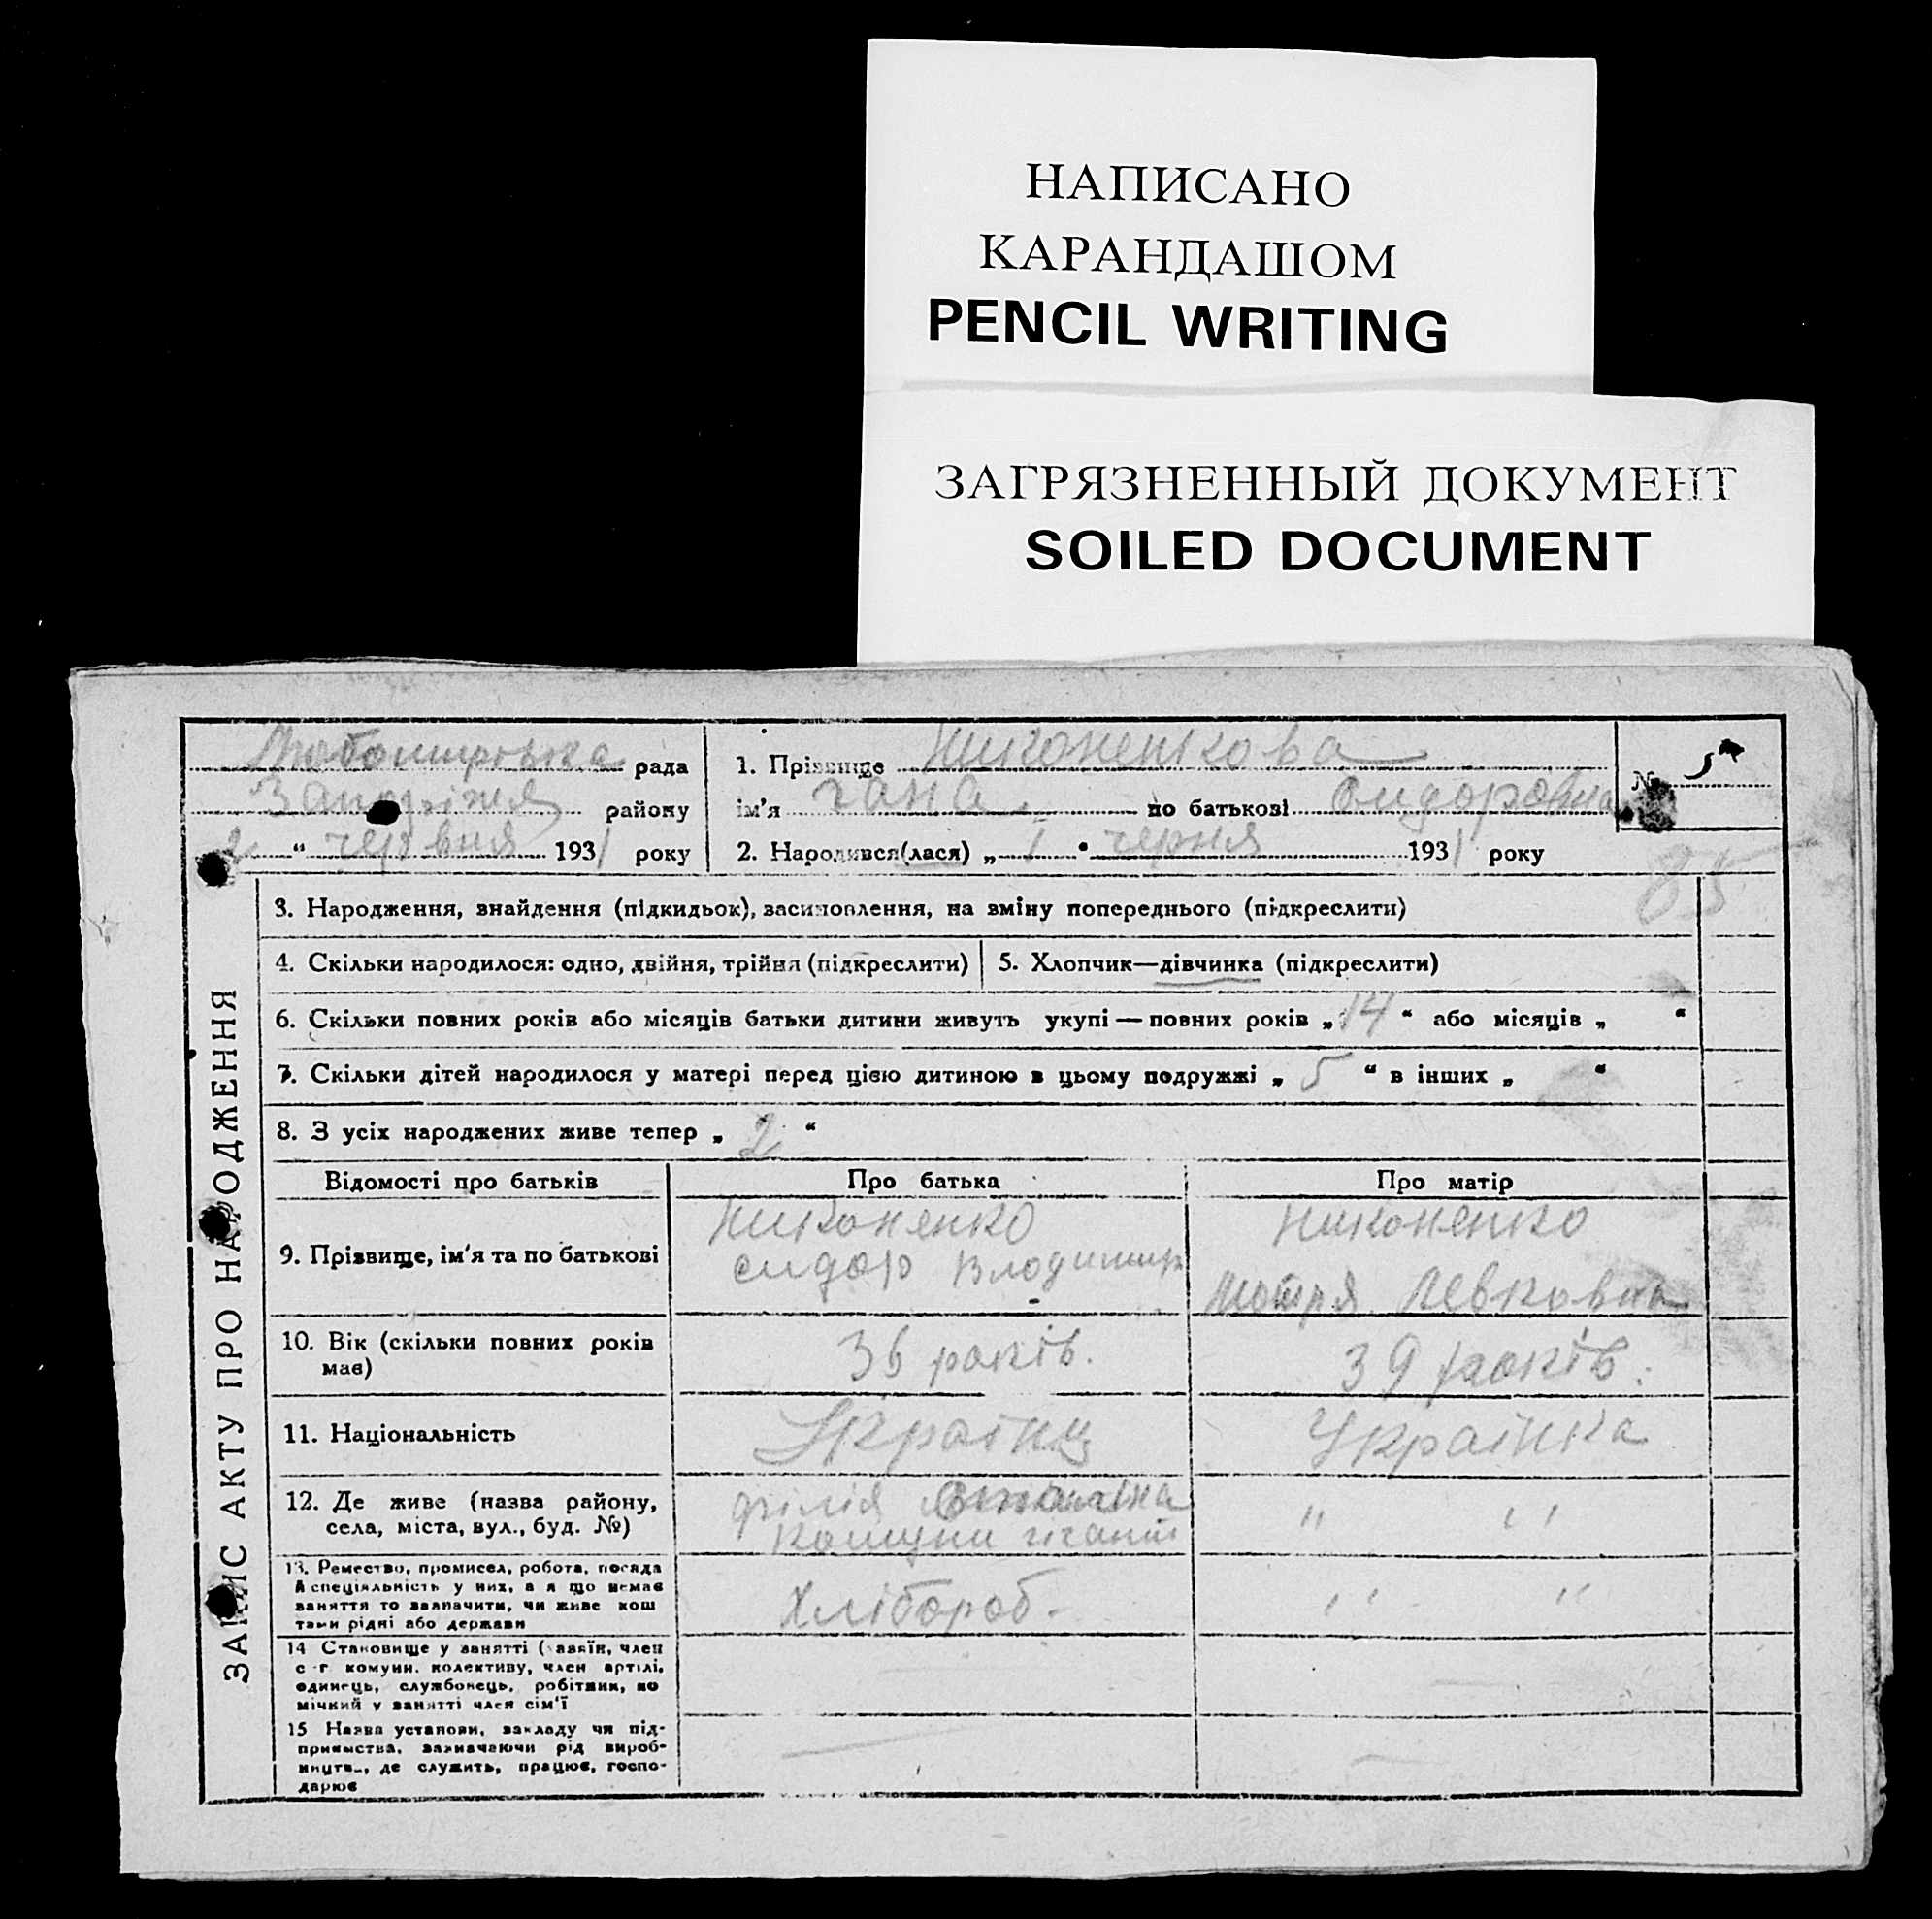 НАПИСАНО
КАРАНДАШОМ
PENCIL WRITING
ЗАГРЯЗНЕННЫЙ ДОКУМЕНТ
SOILED DOCUMENT
ЗАПИС АКТУ ПРО НАРОДЖЕННЯ
Любомирівська рада
Запоріжя району
2 " червня 1931 року
1. Прізвище Никоненкова
ім'я Гана по батькові Сидоровна
2. Народився(лася) „ 1 " черня 1931 року
№ 5
85
3. Народження, знайдення (підкидьок), засиновлення, на зміну попереднього (підкреслити)
4. Скільки народилося: одно, двійня, трійня (підкреслити)
5. Хлопчик—дівчинка (підкреслити)
6. Скільки повних років або місяців батьки дитини живуть укупі — повних років „ 14 “ або місяців „ “
7. Скільки дітей народилося у матері перед цією дитиною в цьому подружжі „ 5 “ в інших „ “
8. З усіх народжених живе тепер „ 2 “
Відомості про батьків
Про батька
Про матір
9. Прізвище, ім'я та по батькові
Никоненко
сидор Владимир
Никоненко
Мотря Левковна
10. Вік (скільки повних років
має)
36 років.
39 років.
11. Національність
Україниц
Українка
12. Де живе (назва району,
села, міста, вул., буд. №)
філія
Комуни гігант
" "
13. Ремество, промисел, робота, посада
й спеціяльність у них, а я що немає
заняття то зазначити, чи живе кош
тами рідні або держави
Хлібороб-
" "
14 Становище у занятті (хазяїн, член
с-г. комуни. колективу, член артілі,
одинець, службовець, робітник, по
мічний у занятті член сім'ї
15 Назва установи, закладу чи під-
приємства, зазначаючи рід вироб-
ництва, де служить, працює, госпо-
дарює